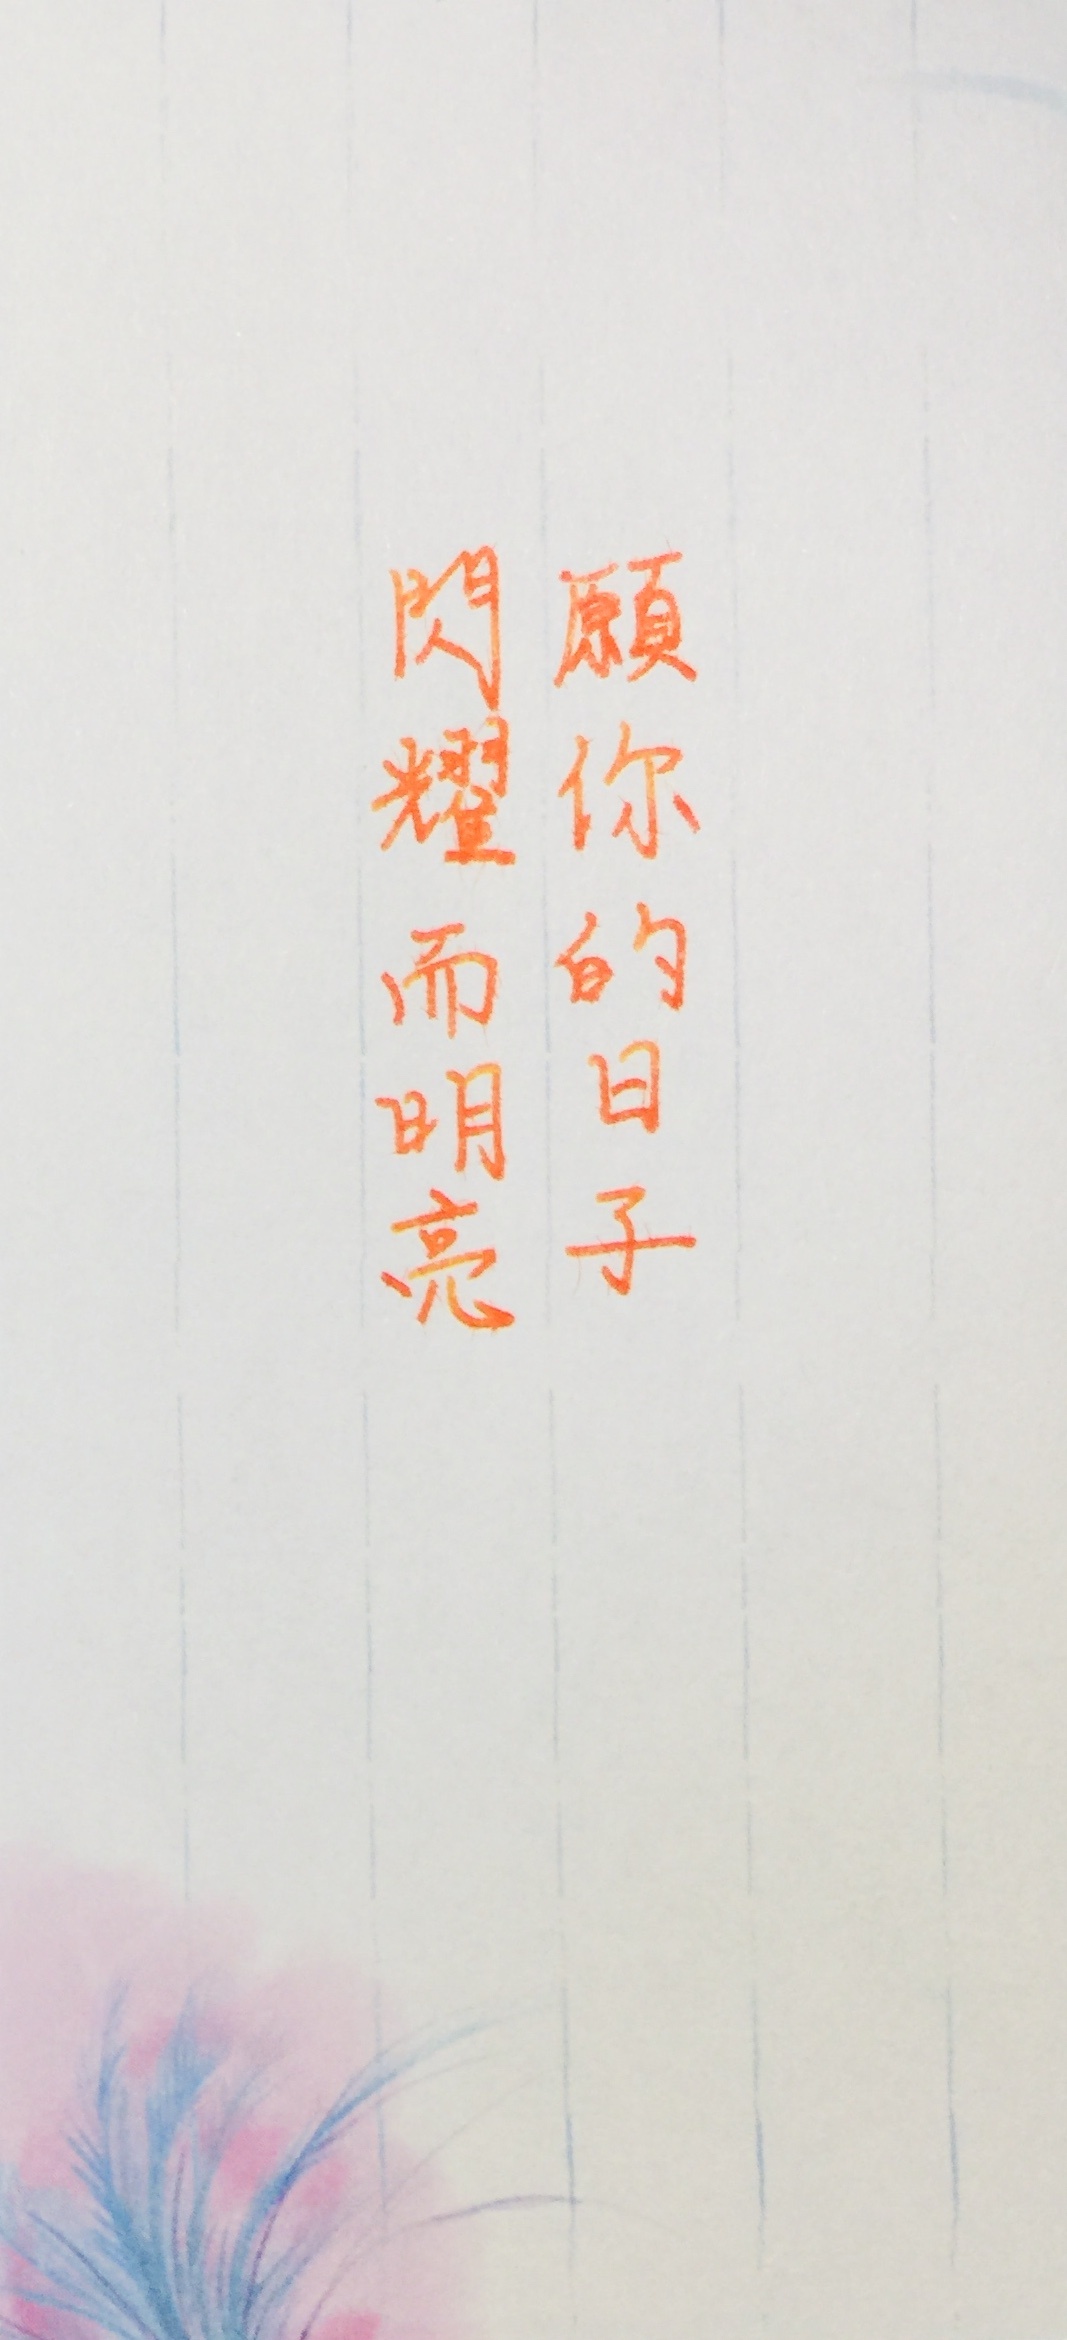 願你的日子
閃耀而明亮